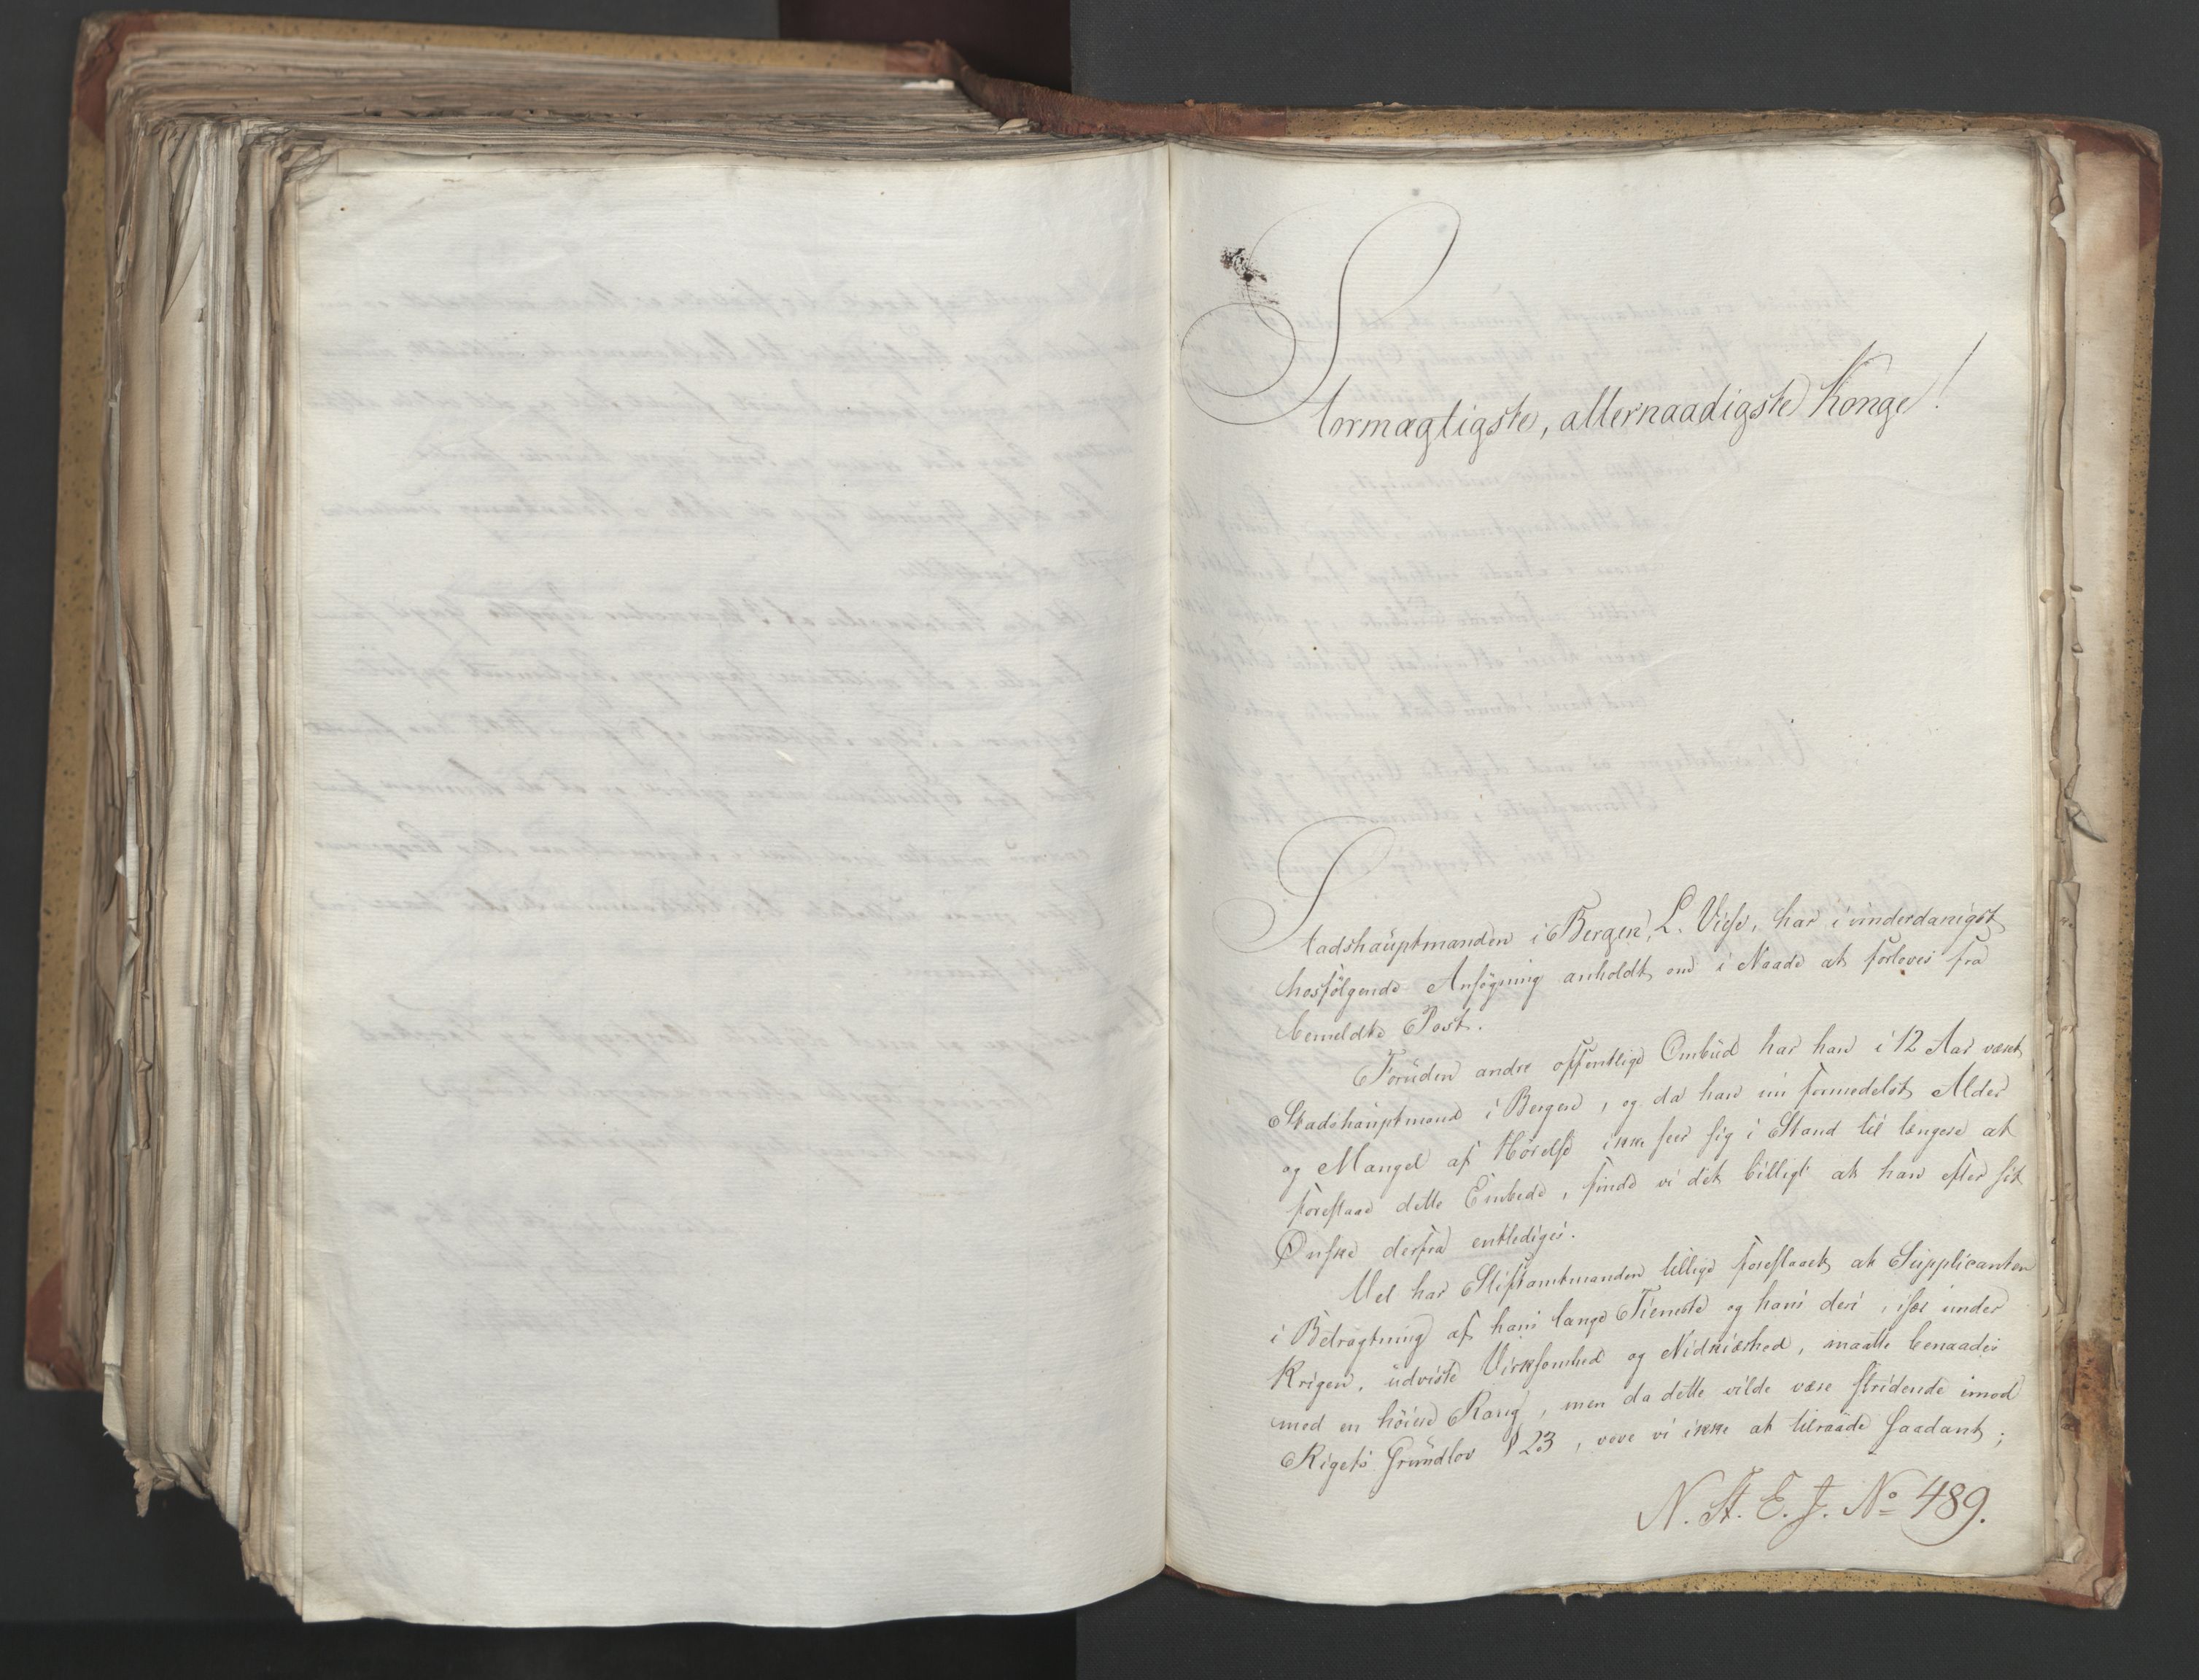 Stormægtigste, allernaadigste Konge!
Stadshauptmanden i Bergen, L. Wiese, har i underdanigst
hosfølgende Ansøgning anholdt om i Naade at forloves fra
bemeldte Post.
Foruden andre offentlige Ombud har han i 12 Aar været
Stadshauptmand i Bergen, og da han nu formedelst Alder
og Mangel af Hørelse ikke seer sig i Stand til længere at
forestaae dette Embede, finde vi det billigt at han efter sit
Ønske derfra entlediges.
Vel har Stiftamtmanden tillige foreslaaet at Supplicanten
i Betragtning af hans lange Tieneste og hans deri, især under
Krigen, udviste Virksomhed og Nidkiærhed, maatte benaades
med en høiere Rang, men da dette vilde være stridende imod
Rigets Grundlov § 23, vove vi ikke at tilraade saadant;
N. St. E. J. No 489.